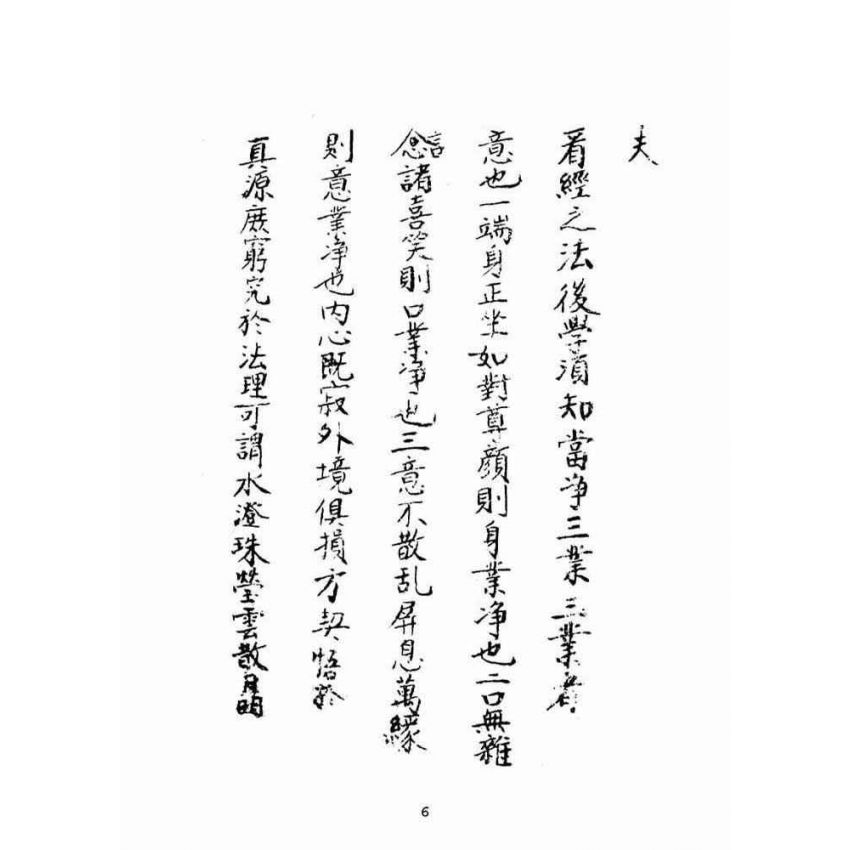 夫
看經之法後學須知當净三業三業者
意也一端身正坐如對尊顔則身業净也二口無雜
言念諸喜笑則口業净也三意不散乱屏息萬縁
則意業净也内心既寂外境俱損方契悟於
真源庶窮究於法理可謂水澄珠瑩雲散月明
6